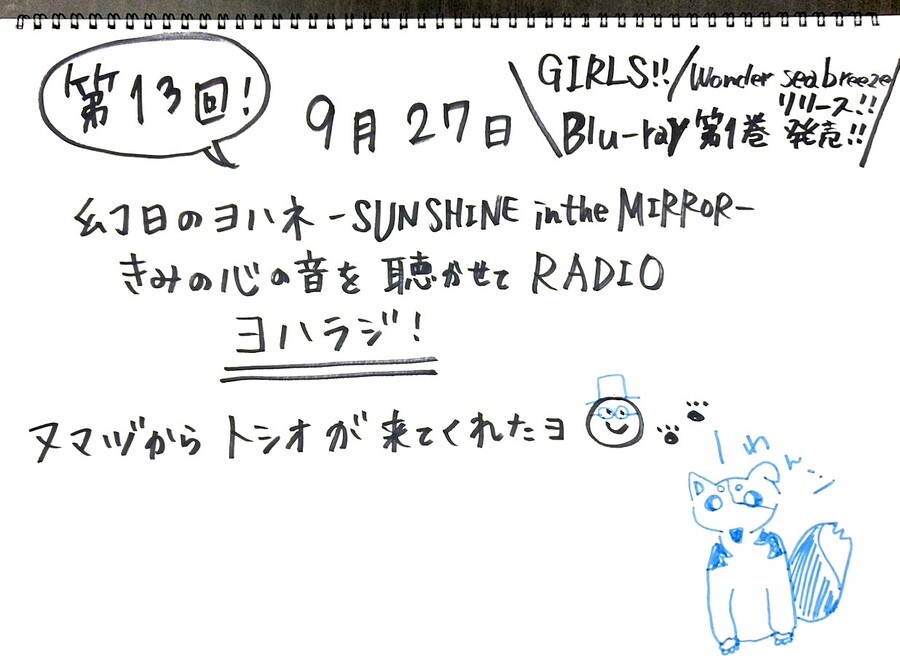 第13回!
9月27日
GIRLS!!/Wonder sea breeze
リリース!!
Blu-ray 第1巻 発売!!
幻日のヨハネ -SUNSHINE in the MIRROR-
きみの心の音を聴かせて RADIO
ヨハラジ!
ヌマヅから トシオが 来てくれたヨ
わん…